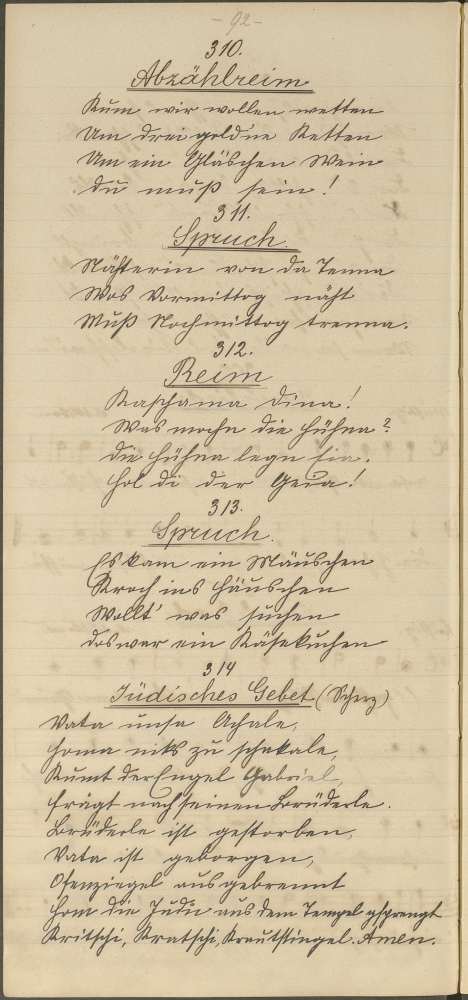 - 92 -
310.
Abzählreim
Kum wir wollen wetten
Um drei goldne Ketten
Um ein Gläschen Wein
du muß sein!
311.
Spruch.
Nähterin von da Tenna
Wos Vormittog näht
Muß Nochmittog trenna.
312.
Reim
Kaschama Dina!
Was mochn die Hühna?
die Hühna legn Eia.
Hol di der Geia!
313.
Spruch.
Es kam ein Mäuschen
Kroch ins Häuschen
Wollt' was suchen
das war ein Käsekuchen
314
Jüdisches Gebet (Scherz)
Vata unsa Achale,
Homa niks zu schakale,
Kumt der Engel Gabriel,
frägt nach seinen Brüderle.
Brüderle ist gestorben,
Vata ist geborgen,
Ofenziegel ausgebrennt
Hom die Judn aus dem Tempel gsprengt
Kritschi, Kratschi, Krautstingel. Amen.